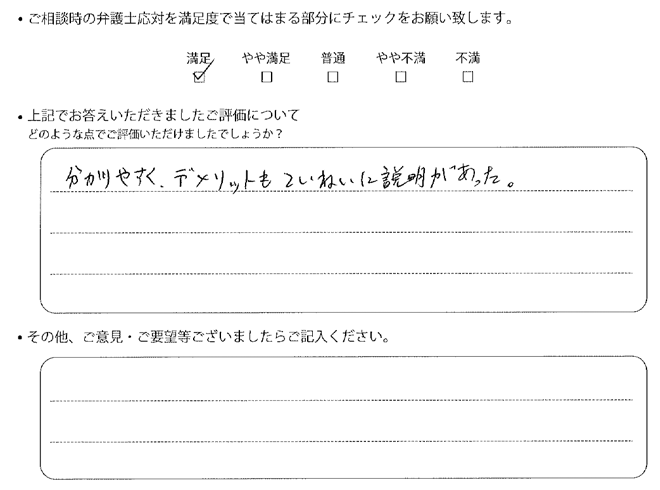 ・ご相談時の弁護士応対を満足度で当てはまる部分にチェックをお願い致します。
満足 やや満足 普通 やや不満 不満
☑ □ □ □ □
・上記でお答えいただきましたご評価について
どのような点でご評価いただけましたでしょうか？
分かりやすく、デメリットもていねいに説明があった。
・その他、ご意見・ご要望等ございましたらご記入ください。